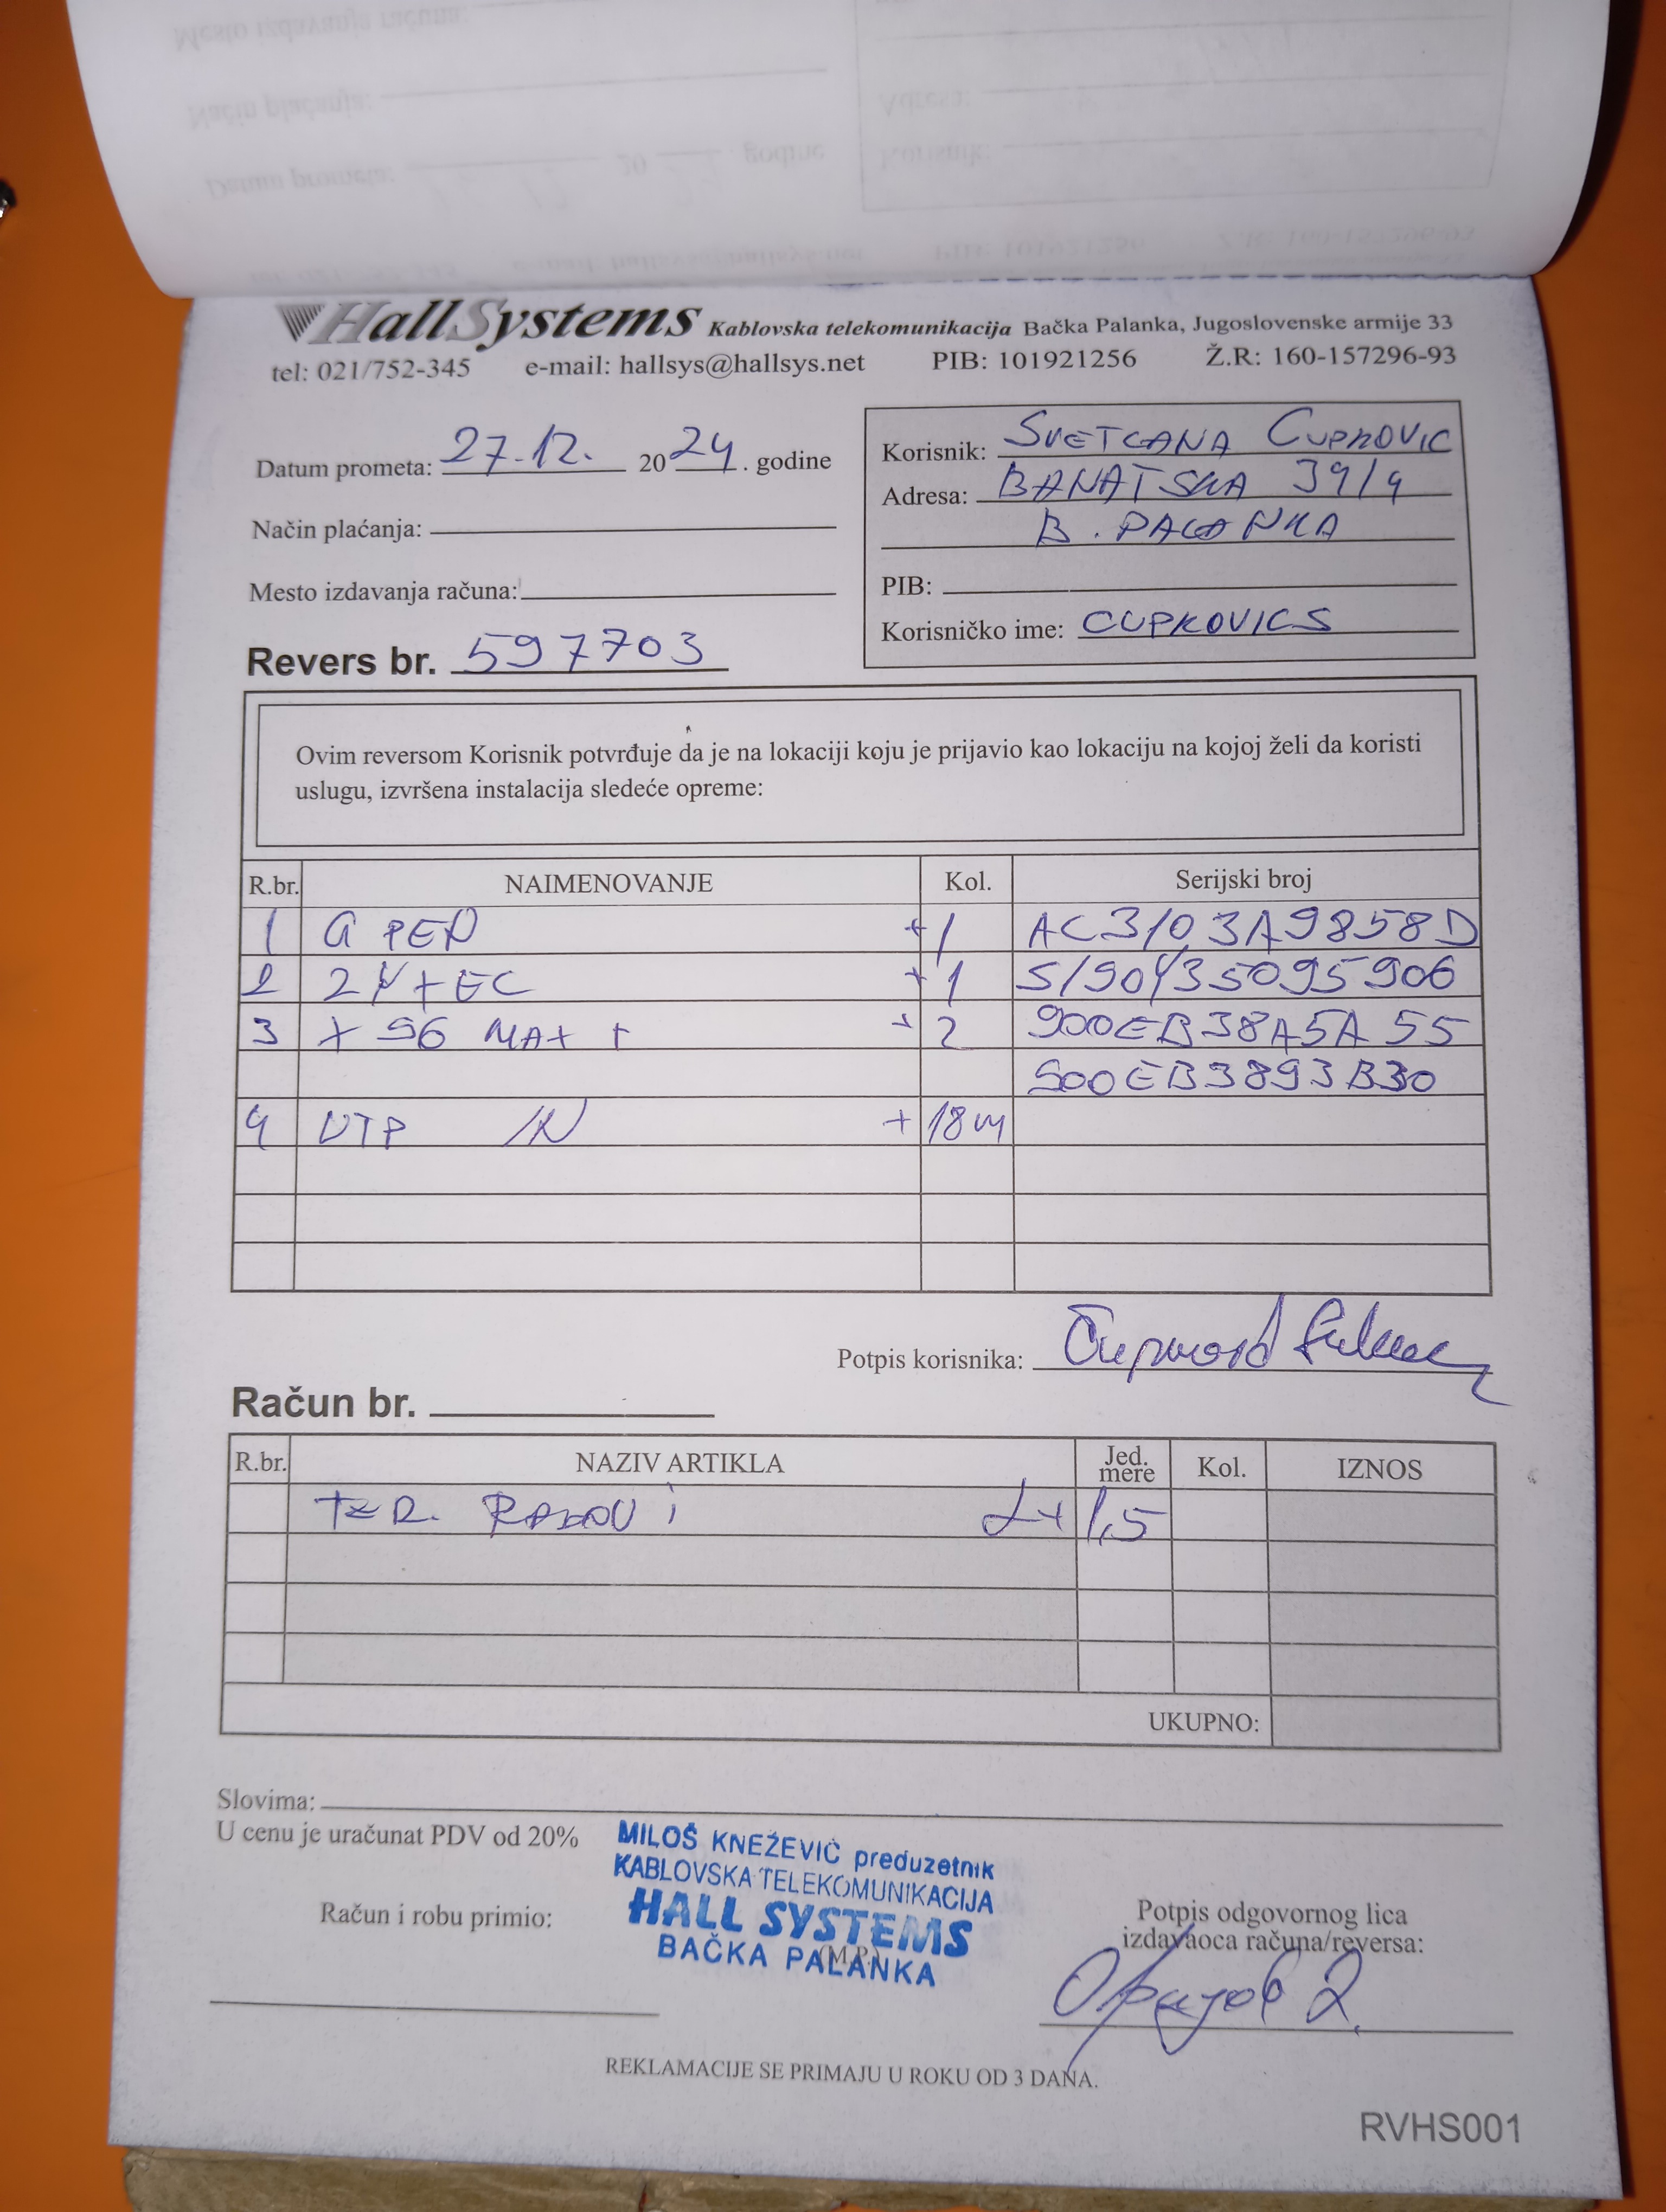 HallSystems Kablovska telekomunikacija Bačka Palanka, Jugoslovenske armije 33
tel: 021/752-345 e-mail: hallsys@hallsys.net PIB: 101921256 Ž.R: 160-157296-93
Datum prometa: 27.12. 2024. godine
Način plaćanja:
Mesto izdavanja računa:
Revers br. 597703
Korisnik: SVETLANA CUPKOVIC
Adresa: BANATSKA 39/4
B. PALANKA
PIB:
Korisničko ime: CUPKOVICS
Ovim reversom Korisnik potvrđuje da je na lokaciji koju je prijavio kao lokaciju na kojoj želi da koristi
uslugu, izvršena instalacija sledeće opreme:
R.br. NAIMENOVANJE Kol. Serijski broj
1 G PEN + 1 AC3103A9858D
2 + 1
3 X 96 MAX + + 2 900EB38A5A55
900EB3893B30
4 UTP IN + 18m
Potpis korisnika:
Račun br.
R.br. NAZIV ARTIKLA Jed. mere Kol. IZNOS
TER. RADOVI 2x 1,5
UKUPNO:
Slovima:
U cenu je uračunat PDV od 20%
MILOŠ KNEŽEVIĆ preduzetnik
KABLOVSKA TELEKOMUNIKACIJA
HALL SYSTEMS
BAČKA PALANKA
(M.P.)
Račun i robu primio:
Potpis odgovornog lica
izdavaoca računa/reversa:
REKLAMACIJE SE PRIMAJU U ROKU OD 3 DANA.
RVHS001